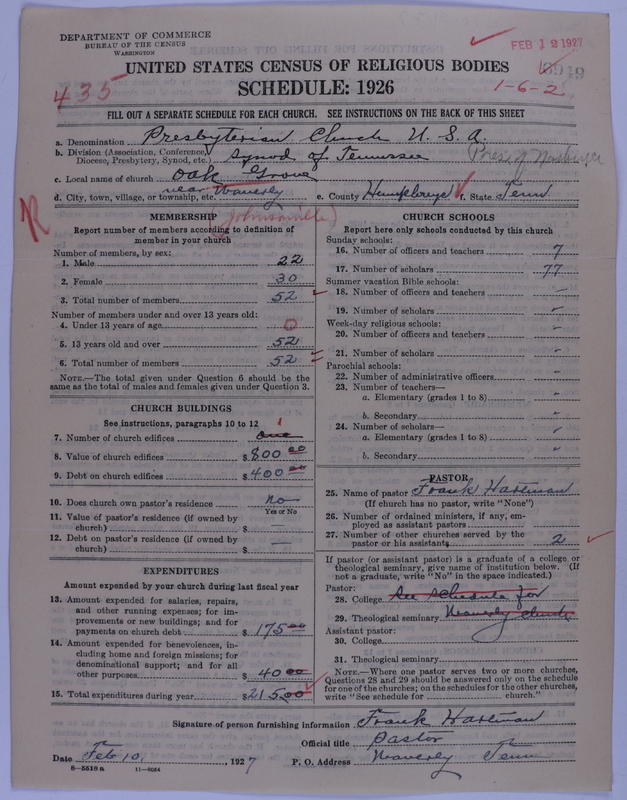 DEPARTMENT OF COMMERCE
BUREAU OF THE CENSUS
WASHINGTON
FEB 12 1927
UNITED STATES CENSUS OF RELIGIOUS BODIES
435
SCHEDULE: 1926
1-6-2
FILL OUT A SEPARATE SCHEDULE FOR EACH CHURCH. SEE INSTRUCTIONS ON THE BACK OF THIS SHEET
a. Denomination Presbyterian Church U.S.A.
b. Division (Association, Conference, Diocese, Presbytery, Synod, etc.) Synod of Tennessee
c. Local name of church Oak Grove
near Waverly
d. City, town, village, or township, etc. e. County Humphreys f. State Tenn
(Johnsonville)
MEMBERSHIP
Report number of members according to definition of
member in your church
Number of members, by sex:
1. Male 22
2. Female 30
3. Total number of members 52
Number of members under and over 13 years old:
4. Under 13 years of age 0
5. 13 years old and over 52
6. Total number of members 52
NOTE.—The total given under Question 6 should be the
same as the total of males and females given under Question 3.
CHURCH BUILDINGS
See instructions, paragraphs 10 to 12
7. Number of church edifices One 1
8. Value of church edifices $ 800 00
9. Debt on church edifices $ 400 00
10. Does church own pastor's residence No
Yes or No
11. Value of pastor's residence (if owned by
church) $ —
12. Debt on pastor's residence (if owned by
church) $ —
EXPENDITURES
Amount expended by your church during last fiscal year
13. Amount expended for salaries, repairs,
and other running expenses; for im-
provements or new buildings; and for
payments on church debt $ 175 00
14. Amount expended for benevolences, in-
cluding home and foreign missions; for
denominational support; and for all
other purposes $ 40 00
15. Total expenditures during year $ 215 00
CHURCH SCHOOLS
Report here only schools conducted by this church
Sunday schools:
16. Number of officers and teachers 7
17. Number of scholars 77
Summer vacation Bible schools:
18. Number of officers and teachers
19. Number of scholars
Week-day religious schools:
20. Number of officers and teachers
21. Number of scholars
Parochial schools:
22. Number of administrative officers
23. Number of teachers—
a. Elementary (grades 1 to 8)
b. Secondary
24. Number of scholars—
a. Elementary (grades 1 to 8)
b. Secondary
PASTOR
25. Name of pastor Frank Hartman
(If church has no pastor, write "None")
26. Number of ordained ministers, if any, em-
ployed as assistant pastors
27. Number of other churches served by the
pastor or his assistants 2
If pastor (or assistant pastor) is a graduate of a college or
theological seminary, give name of institution below. (If
not a graduate, write "No" in the space indicated.)
Pastor:
28. College See schedule for
29. Theological seminary Waverly church
Assistant pastor:
30. College
31. Theological seminary
NOTE.—Where one pastor serves two or more churches,
Questions 28 and 29 should be answered only on the schedule
for one of the churches; on the schedules for the other churches,
write "See schedule for church."
Signature of person furnishing information Frank Hartman
Official title Pastor
Date Feb 10, 1927 P. O. Address Waverly Tenn
8—5518 a 11—8054